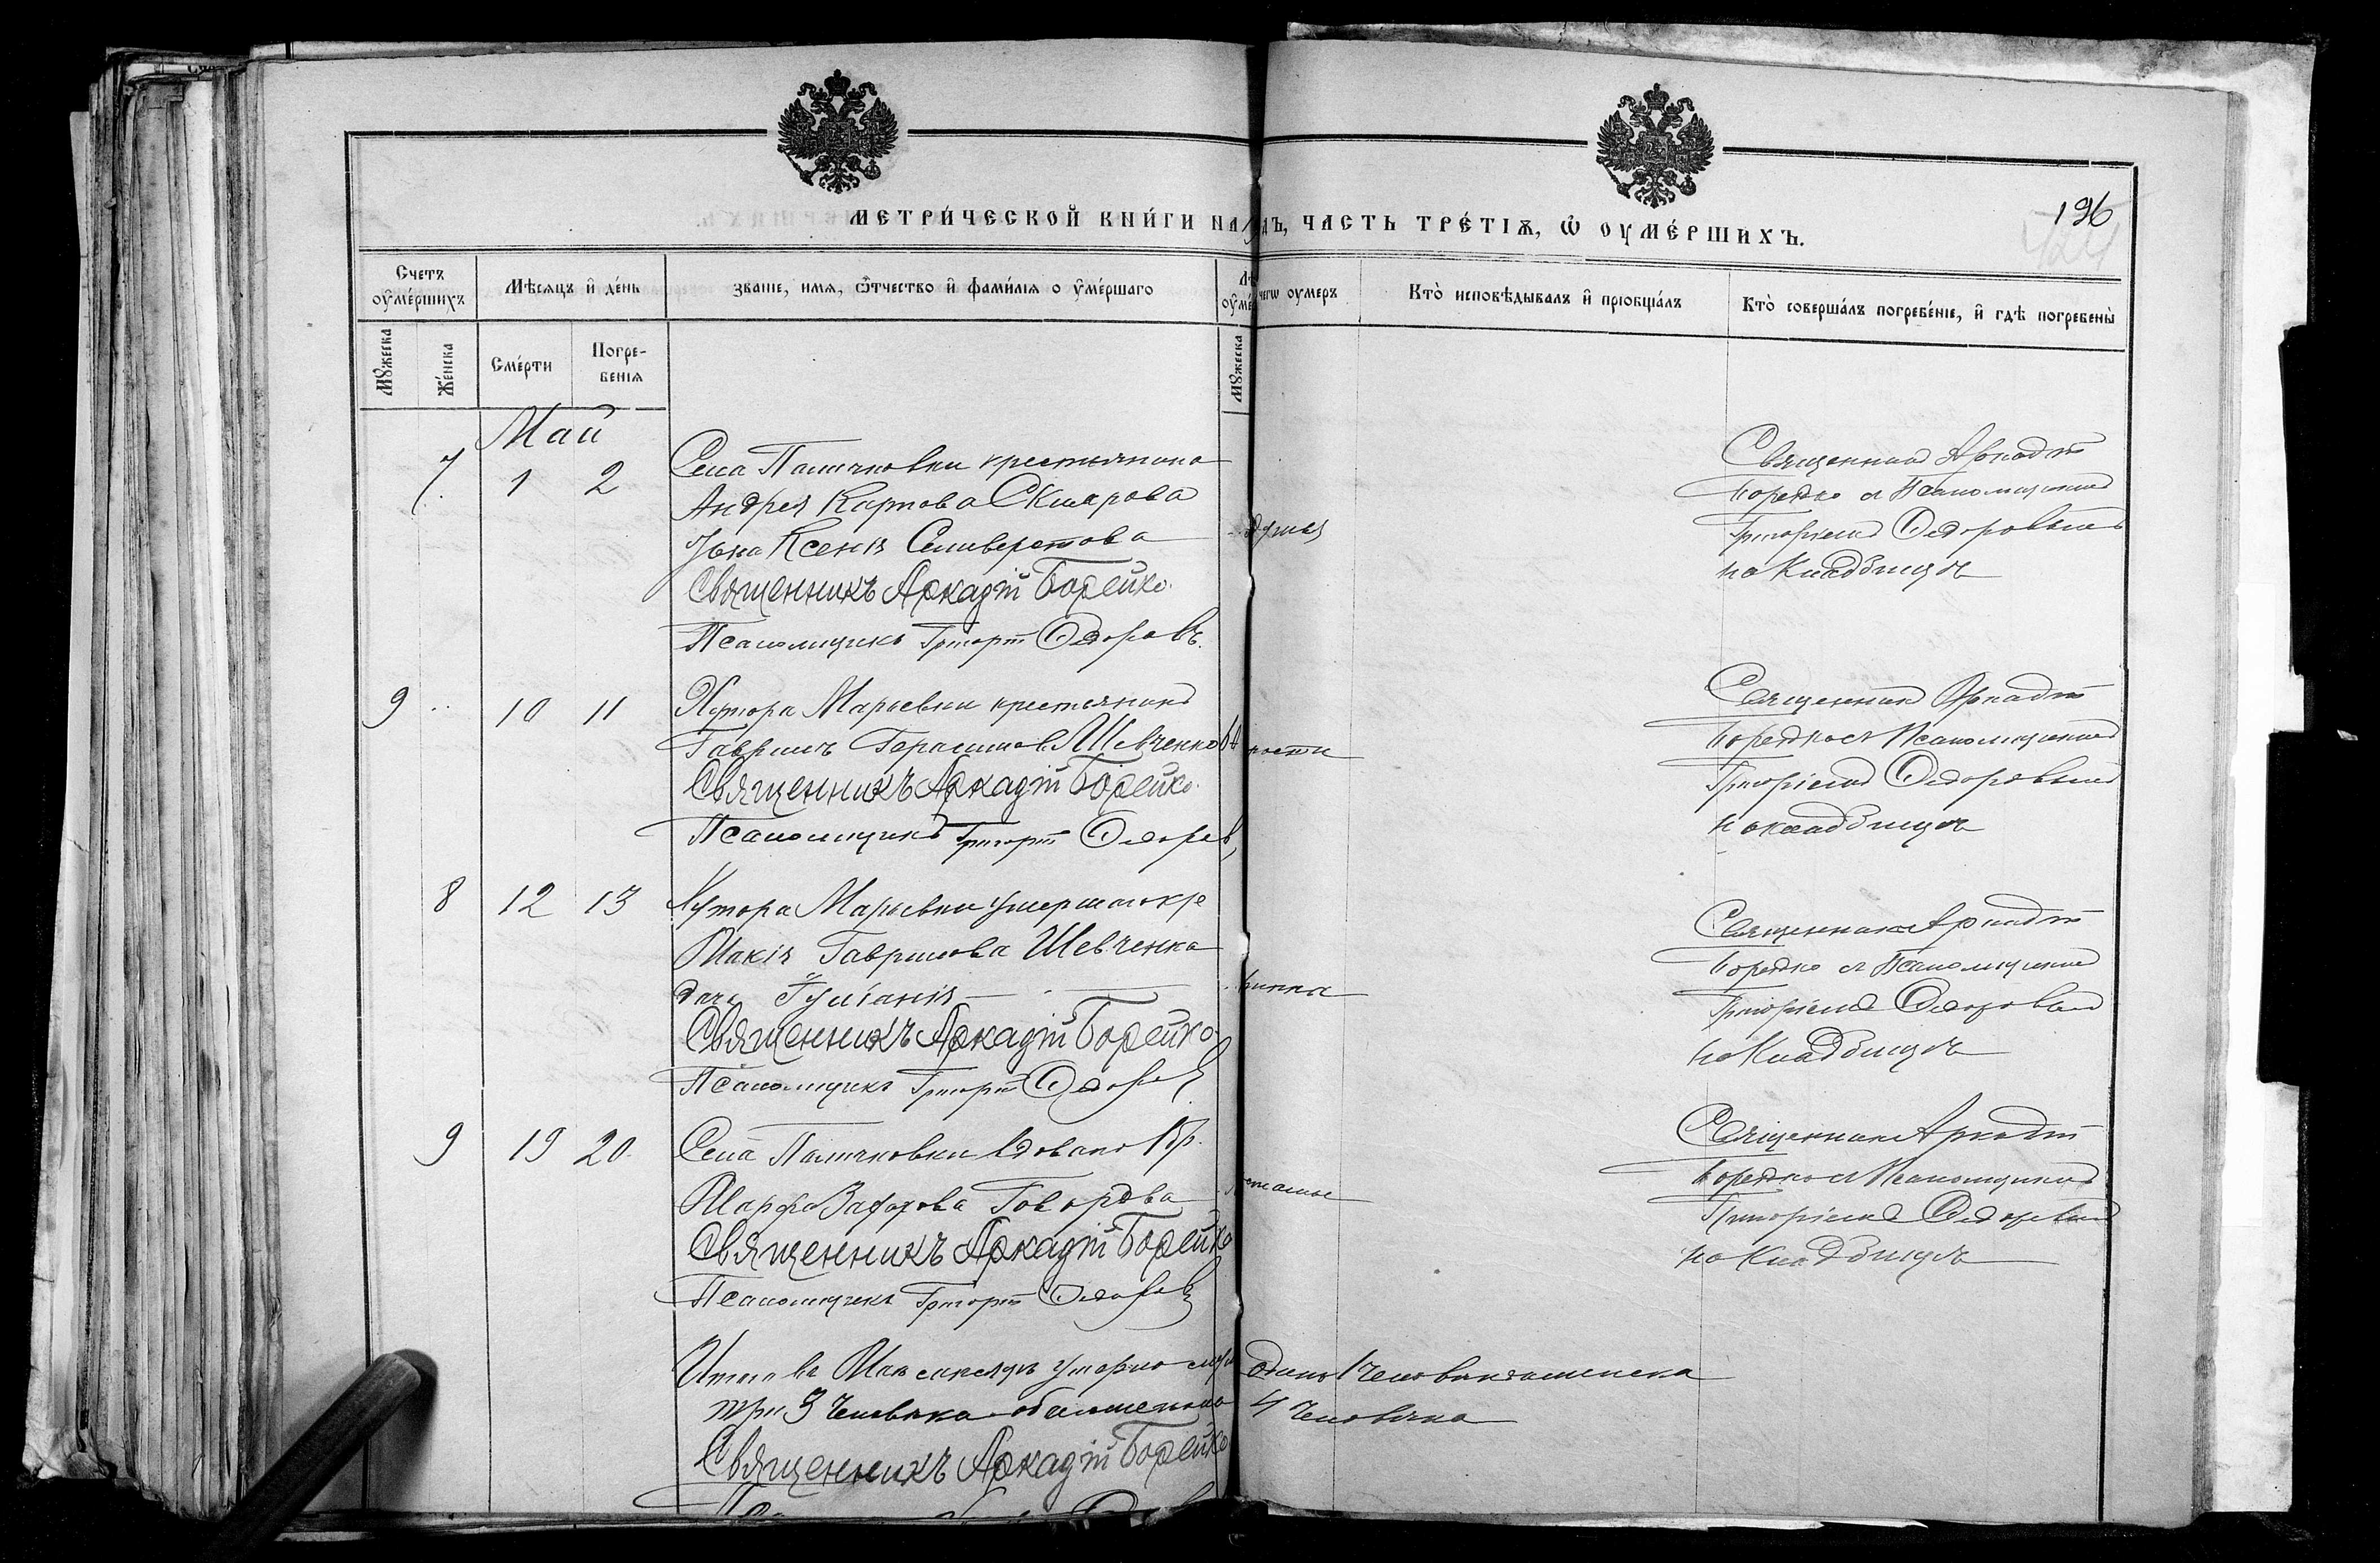 МЕТРИ́ЧЕСКОЙ КНИ́ГИ НА ДЪ, ЧАСТЬ ТРЕ́ТІѦ, Ѡ҆ ОУМЕ́РШИХЪ.
196
424
Счетъ оу҆ме́ршихъ
Мѣсяцъ и҆ де́нь
Званіе, имя, ѿтчество и҆ фами́лія оу҆ме́ршаго
Лѣ
оу҆ме́
чегѡ оумеръ
Кто̀ исповѣдывалъ и҆ пріобща́лъ
Кто̀ соверша́лъ погребе́ніе, и҆ гдѣ погребены̀
Мꙋжеска
Же́нска
Сме́рти
Погре-
бенія
Мꙋжеска
Май
7. 1 2 Села крестьянина
Андрея Карпова Склярова
жена Ксенія Селиверстова
Священникъ Аркадій Борейко.
Псаломщикъ Григорій Ѳедоровъ.
Священник Аркадій
Борейко съ Псаломщикомъ
Григоріемъ Ѳедоровымъ
на Кладбищѣ
9 10 11 Хутора Марьевки крестьянинъ
Гавріилъ Герасимов Шевченко
Священникъ Аркадій Борейко.
Псаломщикъ Григорій Ѳедоров
Священник Аркадій
Борейко съ Псаломщикомъ
Григоріемъ Ѳедоровымъ
на кладбищѣ
8 12 13 Хутора Марьевки умершаго кре
Гаврилова Шевченка
дочь Іуліанія
Священникъ Аркадій Борейко
Псаломщикъ Григорій Ѳедоров
Священник Аркадій
Борейко съ Псаломщикомъ
Григоріемъ Ѳедоровым
на Кладбищѣ
9 19 20. Села вдова Кр.
Марфа Говорова
Священникъ Аркадій Борейко
Псаломщикъ Григорій Ѳедоров
Священник Аркадій
Борейко съ Псаломщикомъ
Григоріемъ Ѳедоровым
на Кладбищѣ
Итого въ Маѣ месяцѣ умерло муж одинъ 1 человѣкъ женска
три 3 человѣка обоего пола 4 человѣка
Священникъ Аркадій Борейко